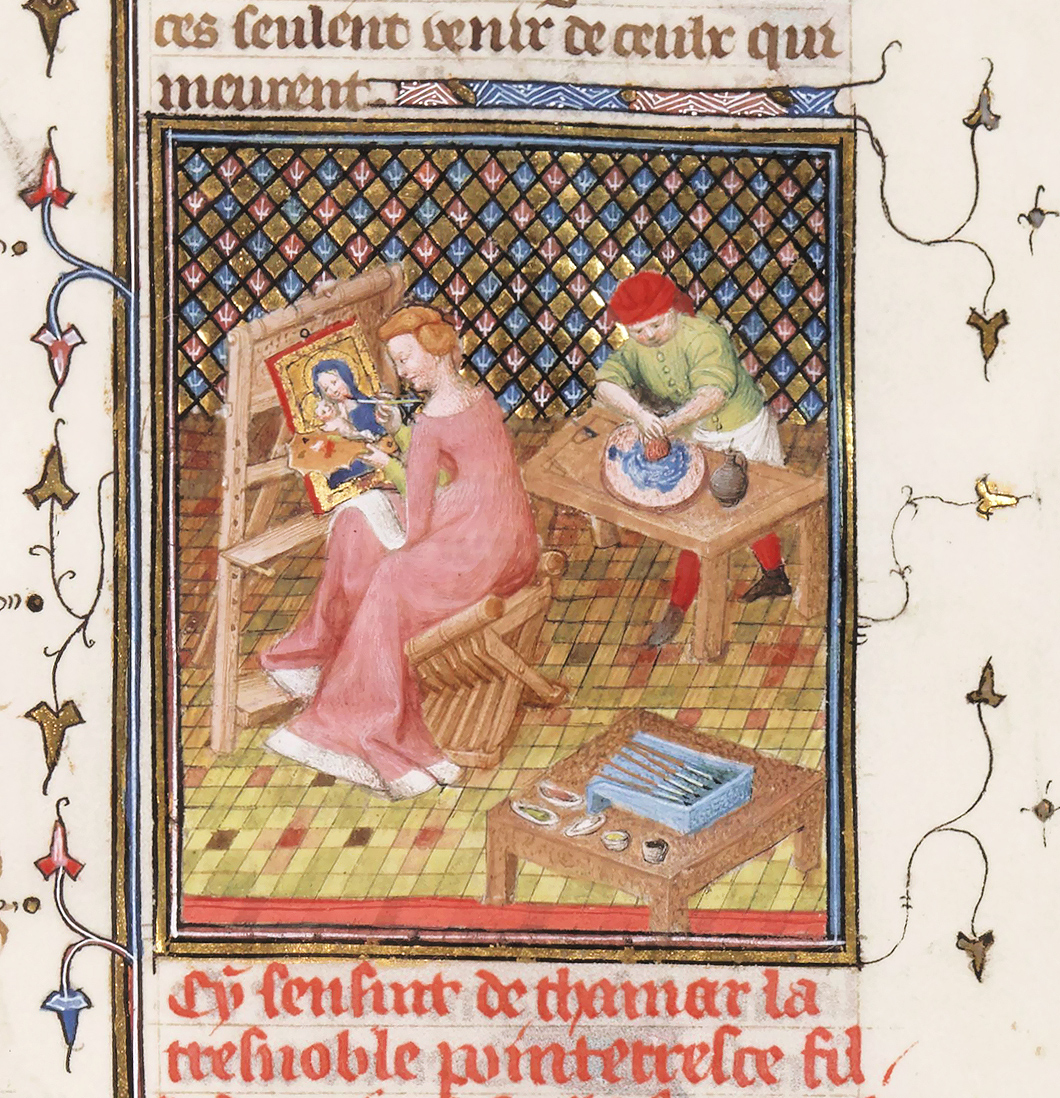 ces seulent venir de ceulx qui
meurent
Cy sensuit de thamar la
tresnoble painterresce fil